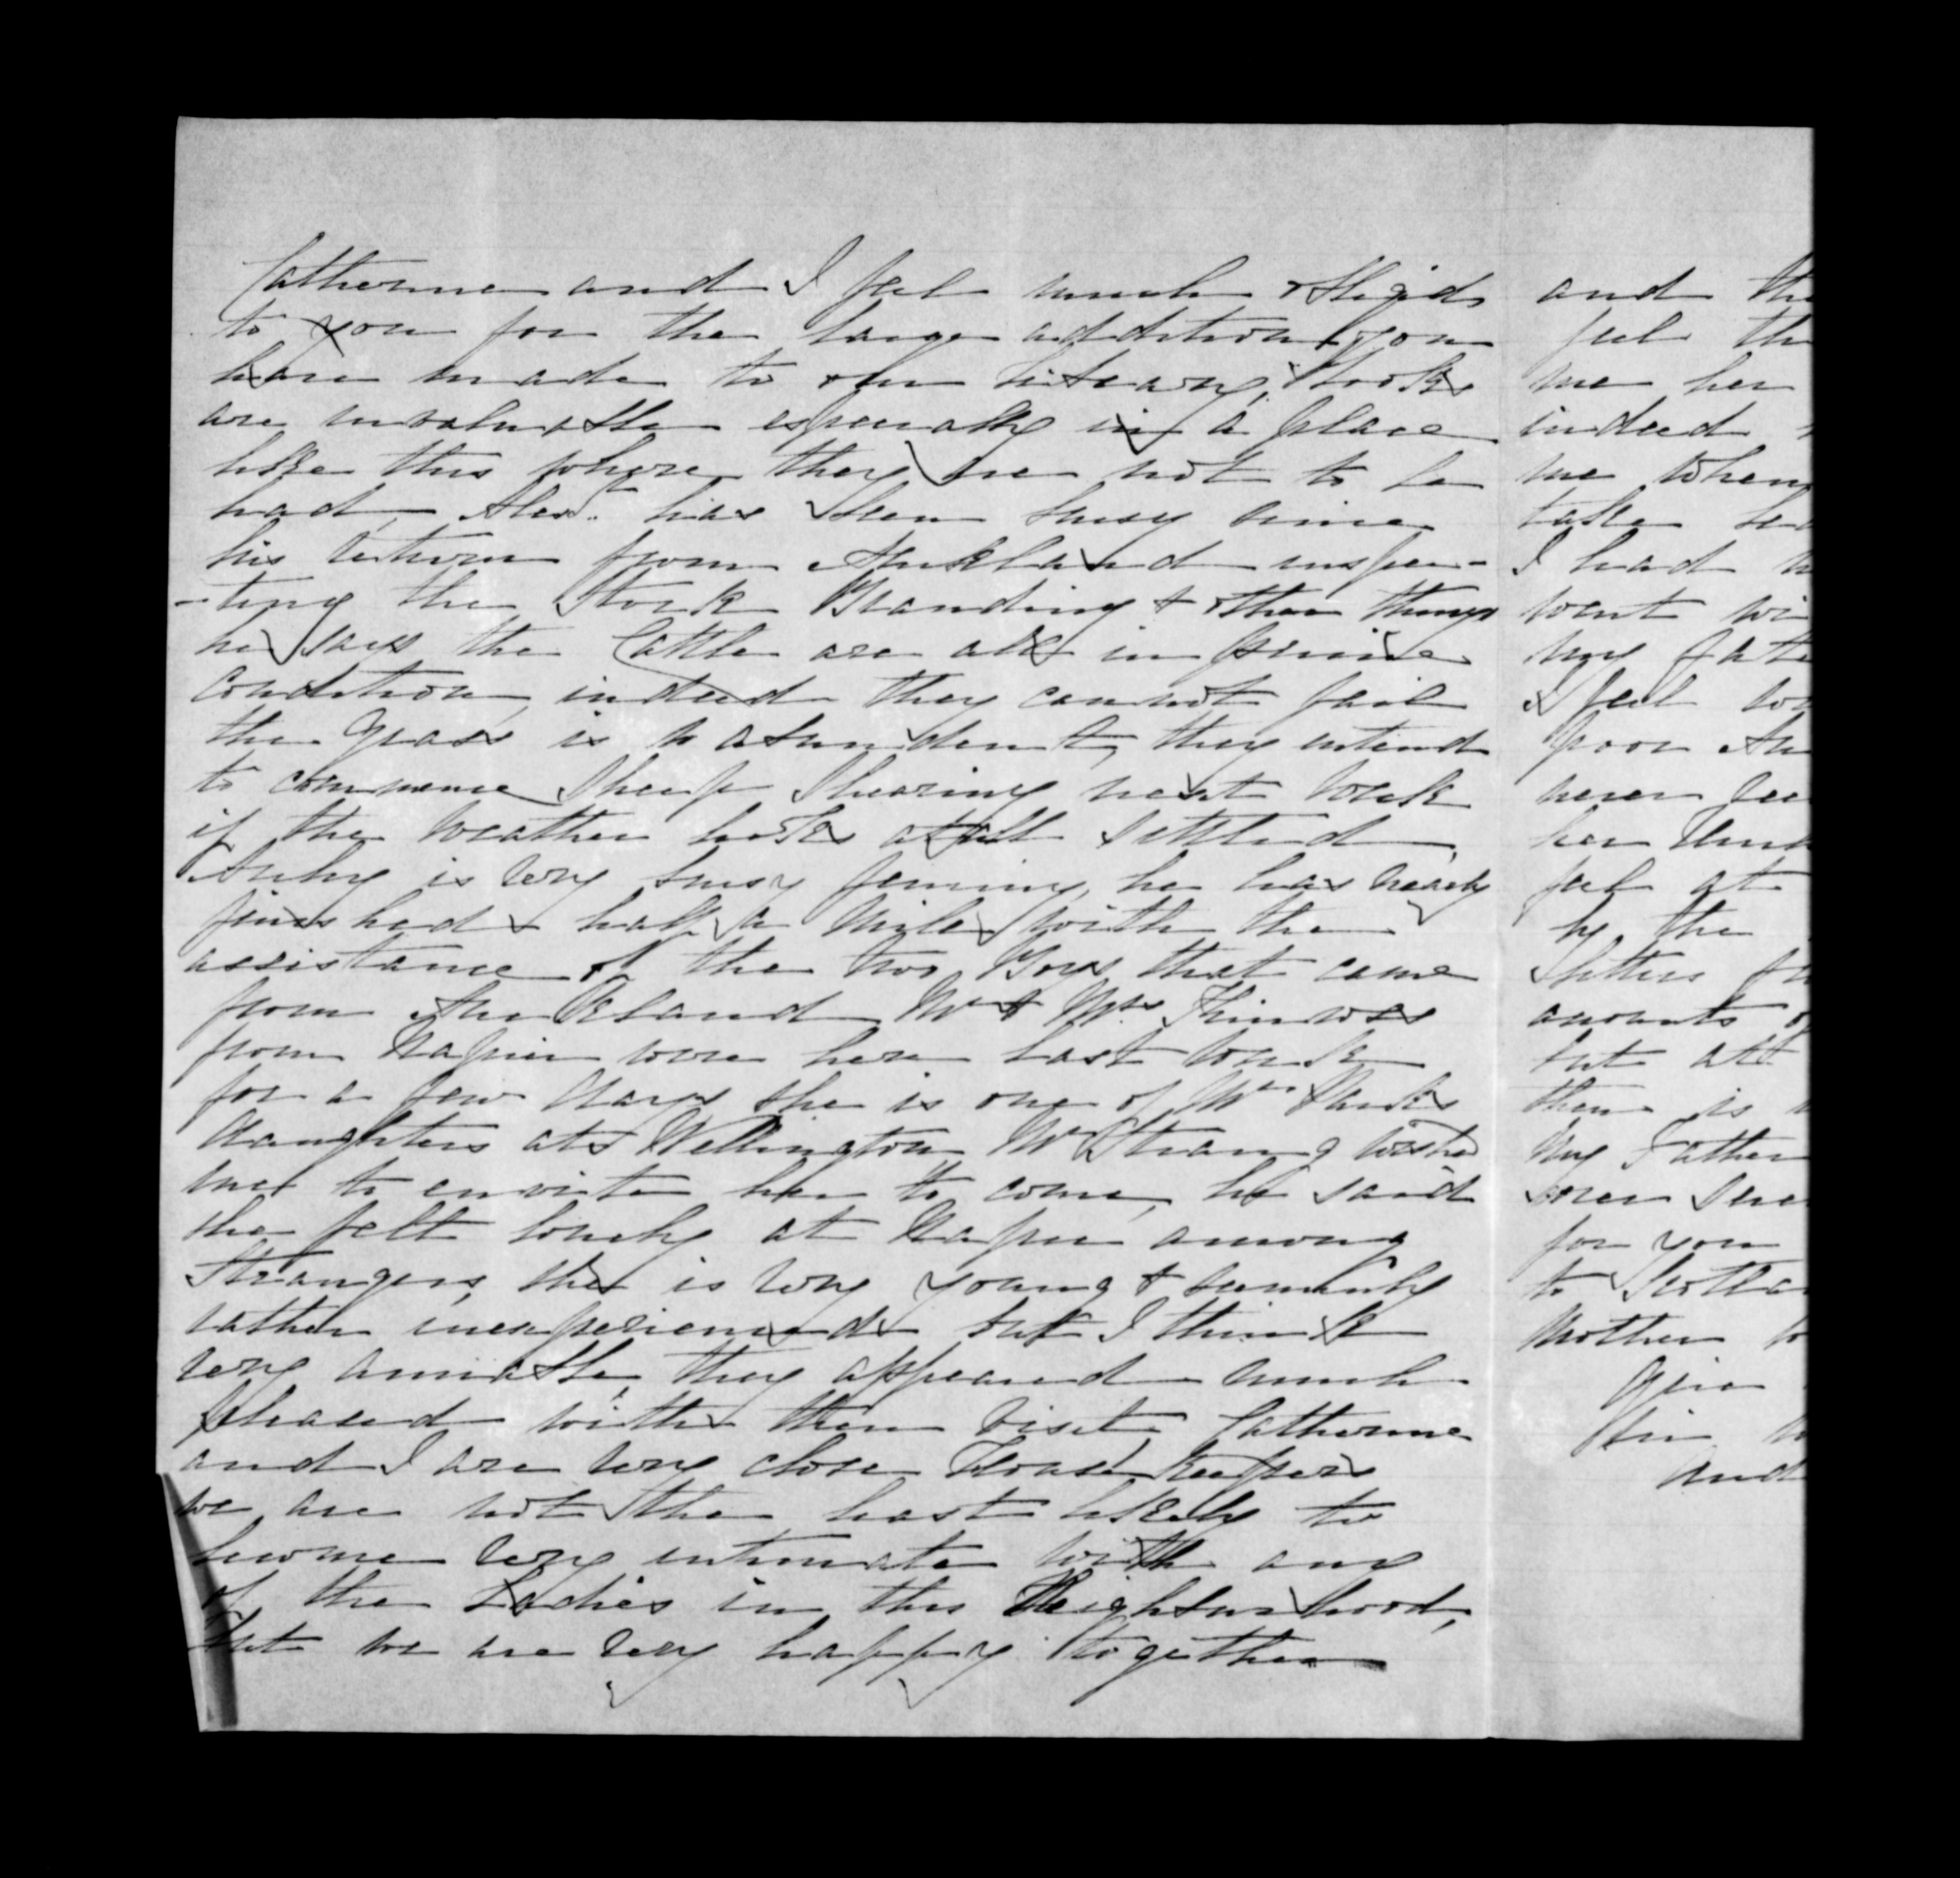 Catherine and I feel much obliged
to you for the large addition you
have made to our Library, Books
are invaluable especially in a place
like this where they are not to be
had, Alexr. has been busy since
his return from Auckland inspec-
-ting the Stock Branding & other things
he says the Cattle are all in prime
condition, indeed they cannot fail
the grass is so abundant, they intend
to commence Sheep Shearing next week
if the weather looks at all settled
Archy is very busy fencing, he has nearly
finished half a mile with the
assistance of the two Boys that came
from Auckland Mr & Mrs
from Napier were here last week
for a few days she is one of Mrs
daughters at Wellington Mr Strang wished
me to envite her to come, he said
she felt lonely at Napier among
Strangers, she is very young & seemingly
rather inexperienced but I think
very amiable, they appeared much
pleased with their visit, Catherine
and I are very close House keepers
we are not the least likely to
become very intimate with any
of the Ladies in this Neighbourhood,
but we are very happy together
and the
feel th
me her
indeed
me when
take
I had
went wi
my fath
I feel
poor
never
her
feel at
by the
letters
accounts
but all
there is
My Father
ever
for you
to Scotla
Mother
Give

and